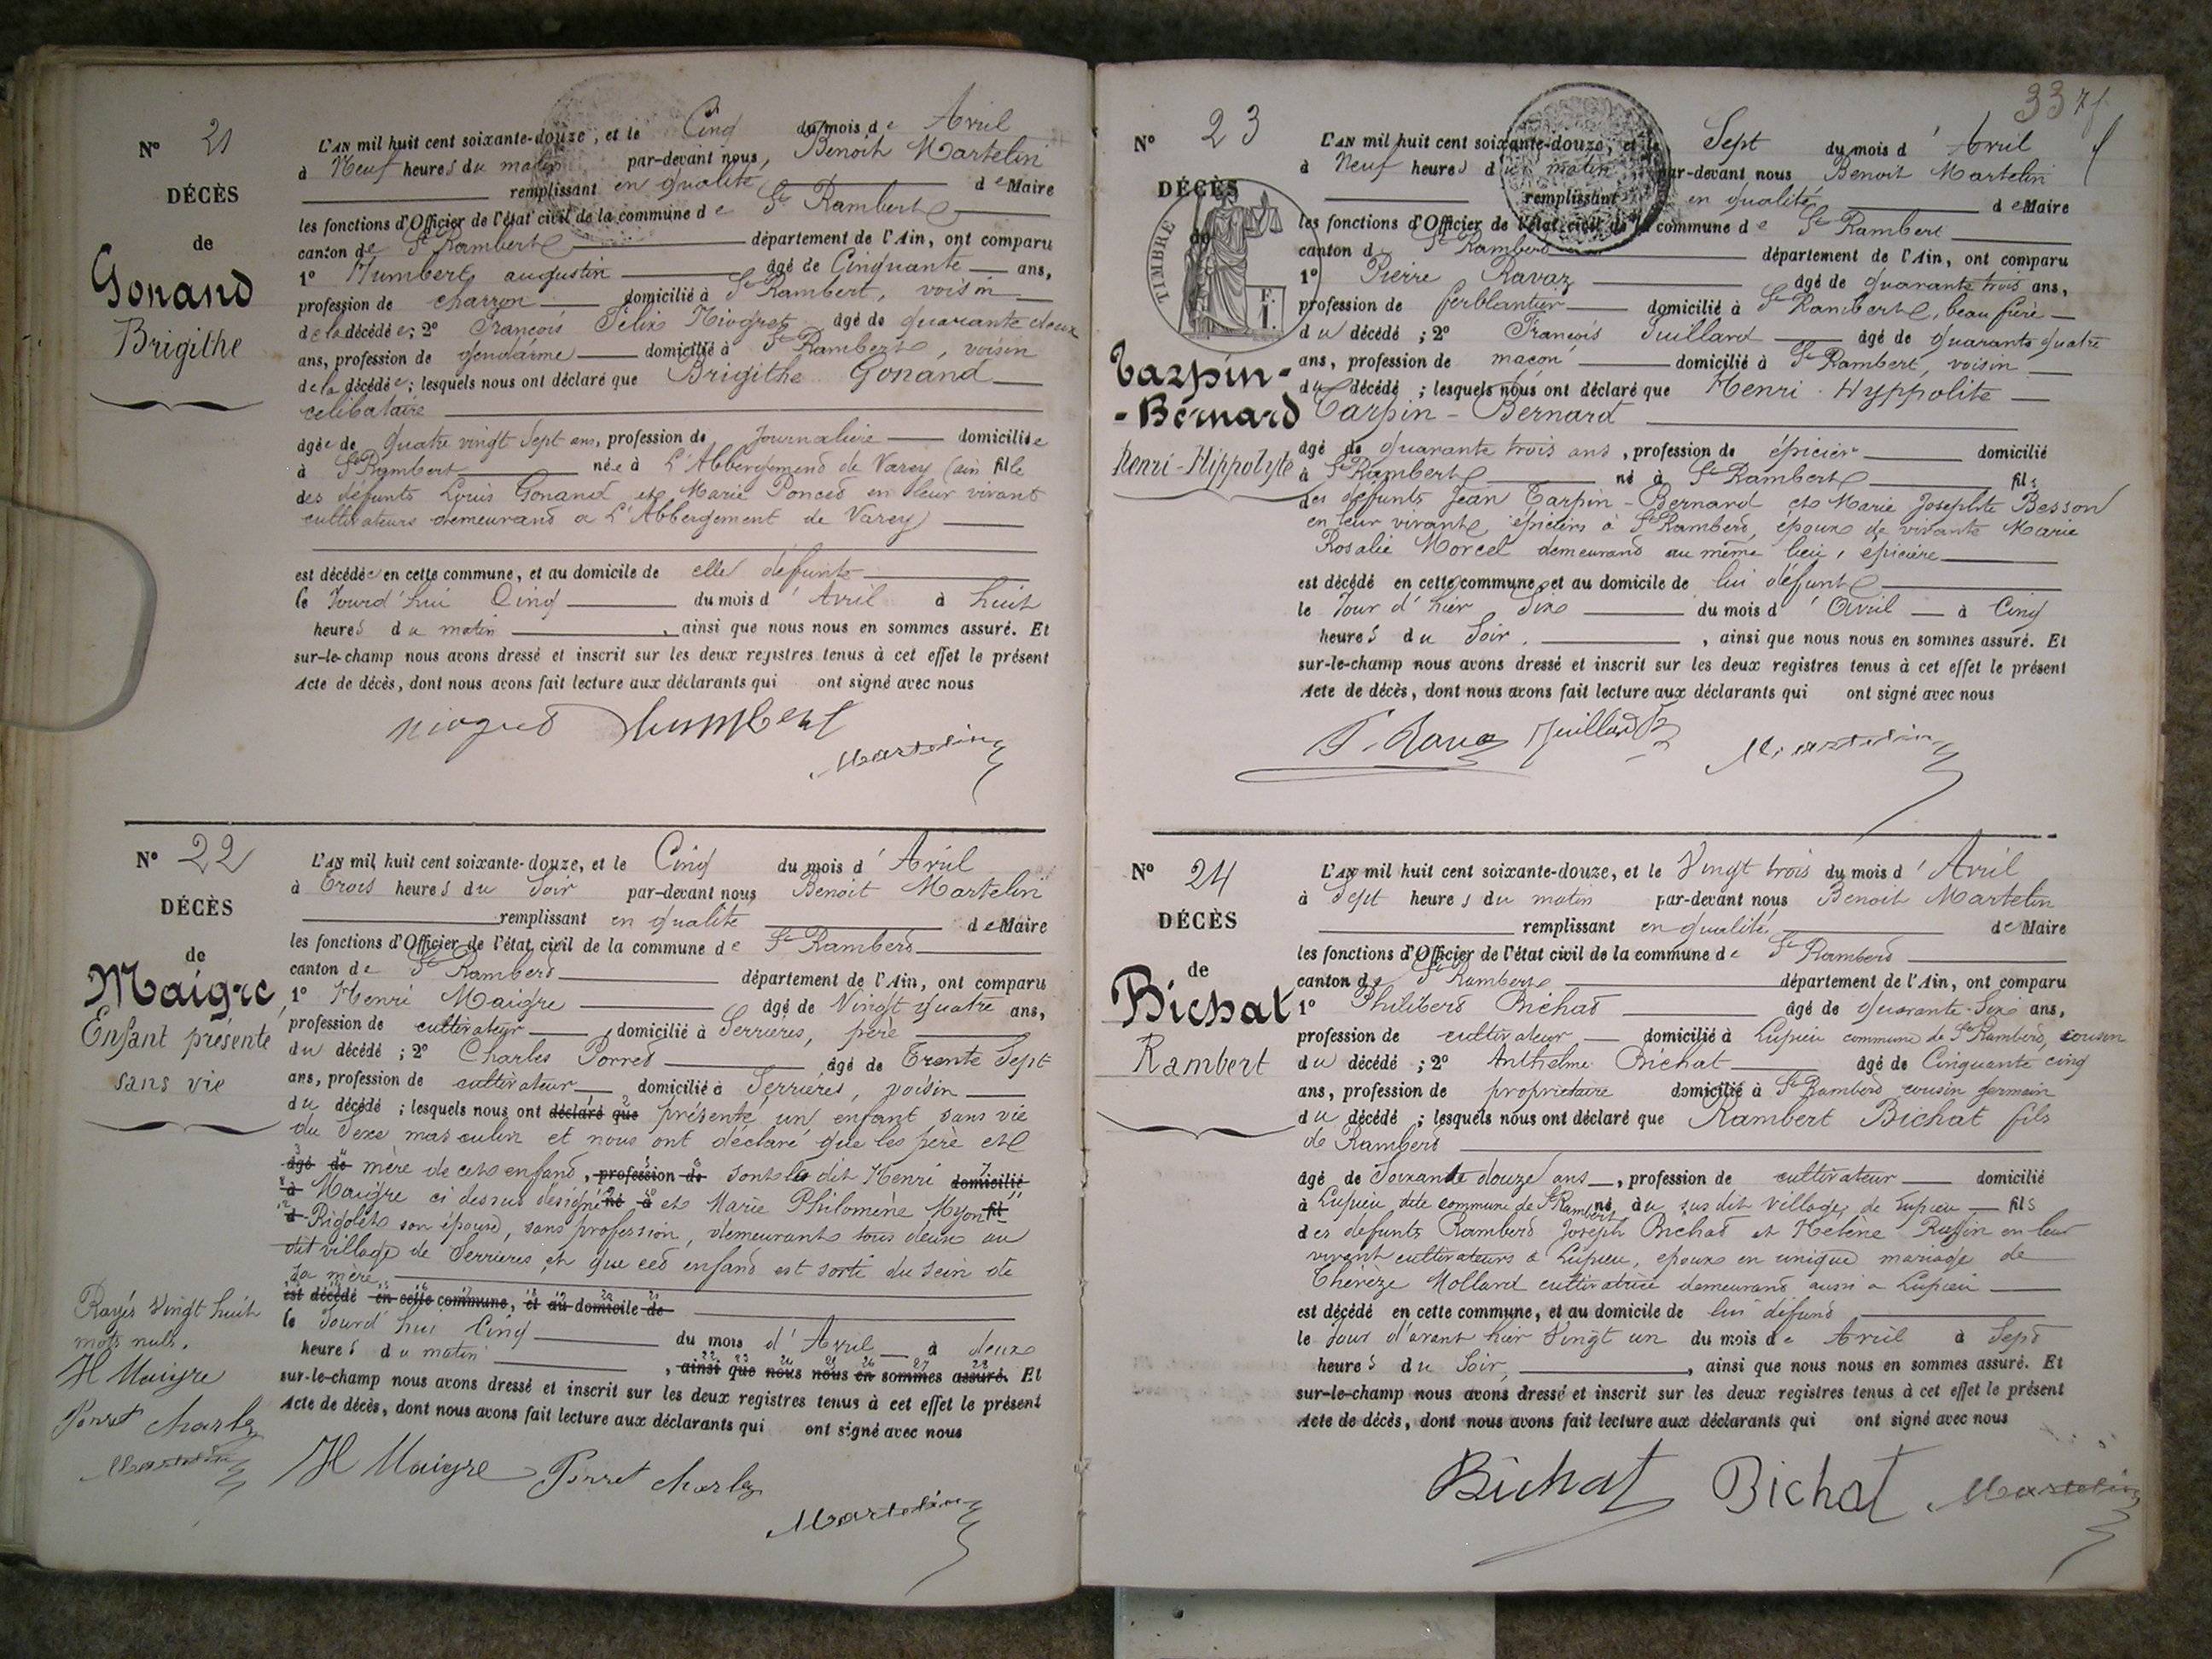 N° 21
DÉCÈS
de
Gonand
Brigithe
L'AN mil huit cent soixante-douze, et le Cinq du mois de Avril
à Neuf heures du matin par-devant nous, Benoit Martelin
remplissant en qualité de Maire
les fonctions d'Officier de l'état civil de la commune de St Rambert
canton de St Rambert département de l'Ain, ont comparu
1° Humbert augustin âgé de Cinquante ans,
profession de charron domicilié à St Rambert, voisin
de la décédée; 2° François Félix Niogret âgé de quarante deux
ans, profession de gendarme domicilié à St Rambert, voisin
de la décédée; lesquels nous ont déclaré que Brigithe Gonand
celibataire
âgée de quatre vingt Sept ans, profession de Journalière domiciliée
à St Rambert née à L'Abbergement de Varey (ain fille
des défunts Louis Gonand et Marie Poncet en leur vivant
cultivateurs demeurand a L'Abbergement de Varey)
est décédée en cette commune, et au domicile de elle défunte
le Jourd'hui Cinq du mois d'Avril à huit
heures du matin, ainsi que nous nous en sommes assuré. Et
sur-le-champ nous avons dressé et inscrit sur les deux registres tenus à cet effet le présent
Acte de décès, dont nous avons fait lecture aux déclarants qui ont signé avec nous
niogret humbert
Martelin
N° 22
DÉCÈS
de
Maigre
Enfant présenté
sans vie
L'AN mil huit cent soixante-douze, et le Cinq du mois d'Avril
à Trois heures du Soir par-devant nous Benoit Martelin
remplissant en qualité de Maire
les fonctions d'Officier de l'état civil de la commune de St Rambert
canton de St Rambert département de l'Ain, ont comparu
1° Henri Maigre âgé de Vingt quatre ans,
profession de cultivateur domicilié à Serrieres, père
du décédé; 2° Charles Porret âgé de Trente Sept
ans, profession de cultivateur domicilié à Serrières, voisin
du décédé; lesquels nous ont déclaré que présenté un enfant sans vie
du Sexe masculin et nous ont déclaré que les père et
âgé de mère de cet enfant, profession de sont le dit Henri domicilié
à Maigre ci dessus désigné né à et Marie Philomène Myon fil
d Rigolet son épouse, sans profession, demeurants tous deux au
dit village de Serrieres, et que cet enfand est sorti du sein de
sa mère
est décédé en cette commune, et au domicile de
le Jourd'hui Cinq du mois d'Avril à deux
heures du matin, ainsi que nous nous en sommes assuré. Et
sur-le-champ nous avons dressé et inscrit sur les deux registres tenus à cet effet le présent
Acte de décès, dont nous avons fait lecture aux déclarants qui ont signé avec nous
Rayés Vingt huit
mots nuls.
H Maigre
Porret charles
Martelin
H Maigre Porret charles
Martelin
337
N° 23
DÉCÈS
de
TIMBRE
F.
I.
Tarpin-
-Bernard
Henri-Hippolyte
L'AN mil huit cent soixante-douze, et le Sept du mois d'Avril
à Neuf heures du matin par-devant nous Benoit Martelin
remplissant en qualité de Maire
les fonctions d'Officier de l'état civil de la commune de St Rambert
canton d St Rambert département de l'Ain, ont comparu
1° Pierre Ravaz âgé de quarante trois ans,
profession de ferblantier domicilié à St Rambert, beau frère
du décédé; 2° François Juillard âgé de quarante quatre
ans, profession de maçon domicilié à St Rambert, voisin
du décédé; lesquels nous ont déclaré que Henri Hyppolite
Tarpin-Bernard
âgé de quarante trois ans, profession de épicier domicilié
à St Rambert né à St Rambert fils
des defunts Jean Tarpin-Bernard et Marie Josephte Besson
en leur vivant, épiciers à St Rambert, époux de vivante Marie
Rosalie Morcel demeurand au même lieu, épicière
est décédé en cette commune, et au domicile de lui défunt
le Jour d'hier Six du mois d'Avril à Cinq
heures du Soir, ainsi que nous nous en sommes assuré. Et
sur-le-champ nous avons dressé et inscrit sur les deux registres tenus à cet effet le présent
Acte de décès, dont nous avons fait lecture aux déclarants qui ont signé avec nous
P. Rava Juillard
Martelin
N° 24
DÉCÈS
de
Bichat
Rambert
L'AN mil huit cent soixante-douze, et le Vingt trois du mois d'Avril
à Sept heures du matin par-devant nous Benoit Martelin
remplissant en qualité de Maire
les fonctions d'Officier de l'état civil de la commune de St Rambert
canton de St Rambert département de l'Ain, ont comparu
1° Philibert Bichat âgé de quarante-Six ans,
profession de cultivateur domicilié à Lupieu commune de St Rambert, cousin
du décédé; 2° Anthelme Bichat âgé de Cinquante cinq
ans, profession de propriétaire domicilié à St Rambert cousin germain
du décédé; lesquels nous ont déclaré que Rambert Bichat fils
de Rambert
âgé de Soixante douze ans, profession de cultivateur domicilié
à Lupieu dite commune de St Rambert né au sus dit village de Lupieu fils
des defunts Rambert Joseph Bichat et Helène Ruffin en leur
vivant cultivateurs à Lupieu, epoux en unique mariage de
Thérèze Molland cultivatrice demeurand aussi a Lupieu
est décédé en cette commune, et au domicile de lui défund
le Jour d'avant hier Vingt un du mois de Avril à Sept
heures du Soir, ainsi que nous nous en sommes assuré. Et
sur-le-champ nous avons dressé et inscrit sur les deux registres tenus à cet effet le présent
Acte de décès, dont nous avons fait lecture aux déclarants qui ont signé avec nous
Bichat Bichat Martelin